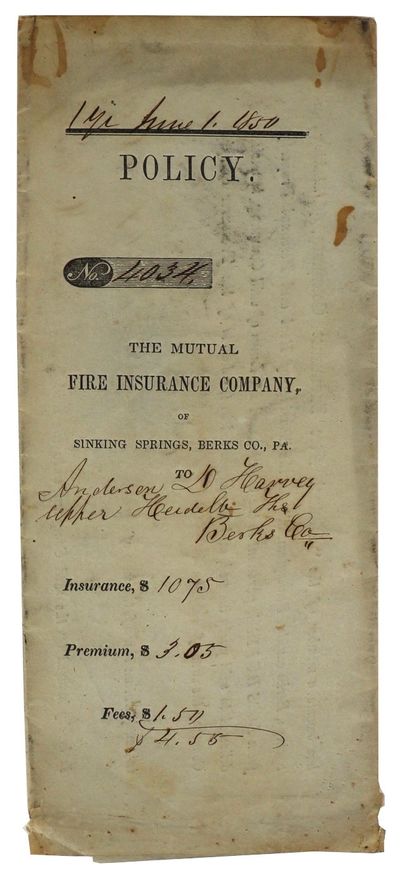 1 yr June 1. 1850
POLICY.
No. 4034
THE MUTUAL
FIRE INSURANCE COMPANY,
OF
SINKING SPRINGS, BERKS CO., PA.
TO
Anderson D Harvey
Upper Heidelb
Berks Co
Insurance, $ 1075
Premium, $ 3.05
Fees, $1.50
$4.55